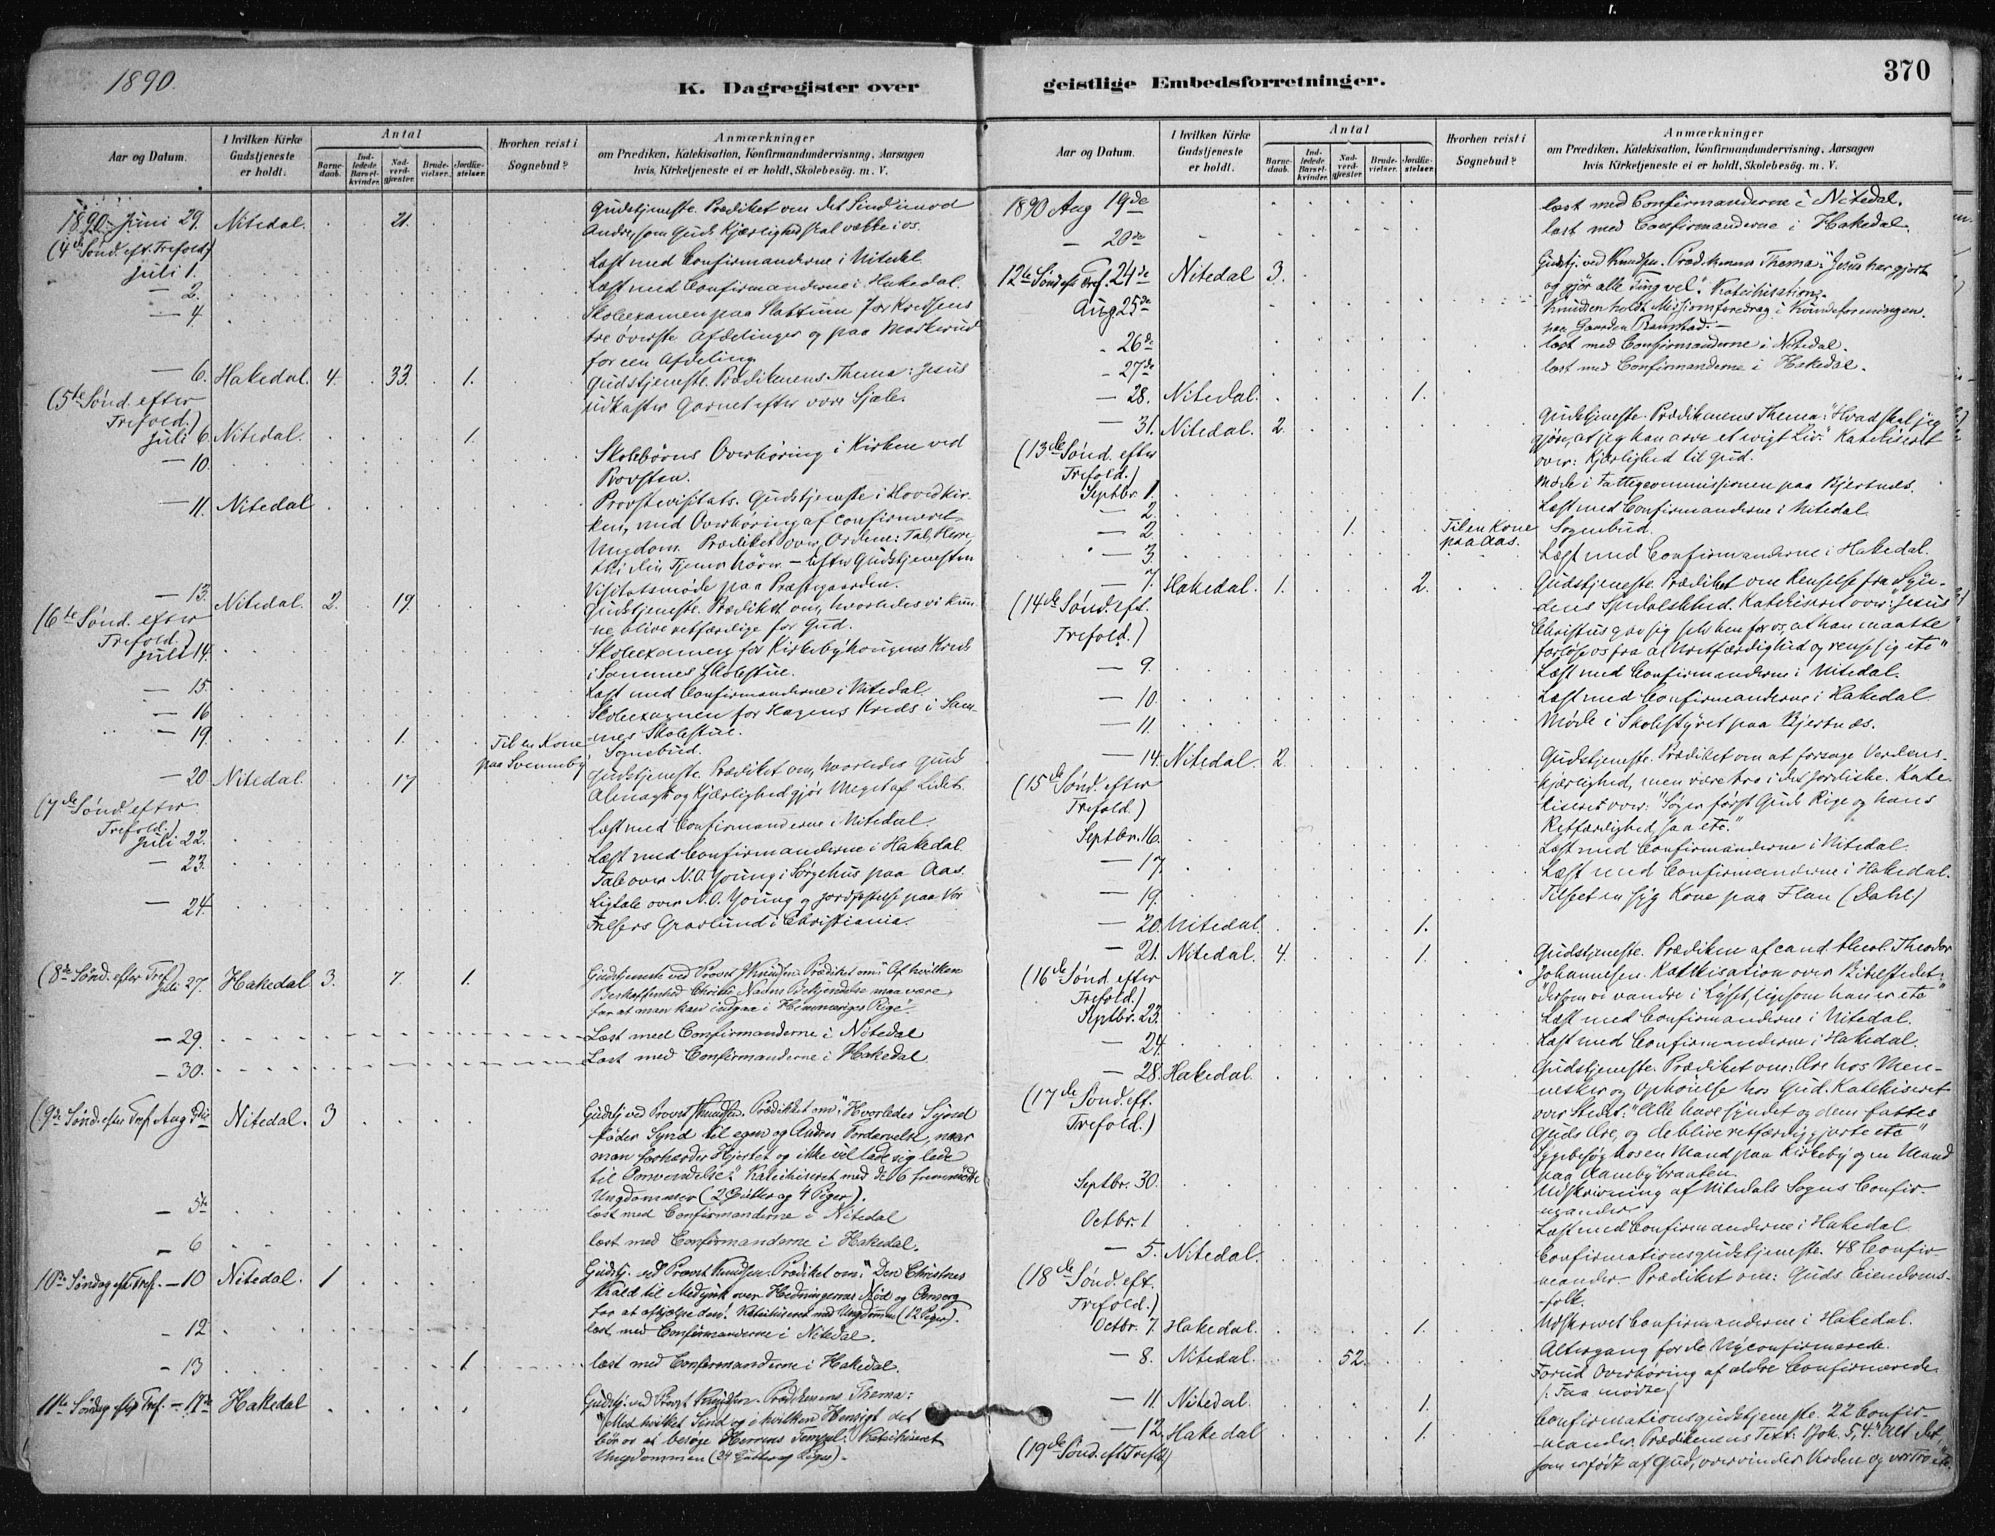 1890.
K. Dagregister over
Aar og Datum.
I hvilken Kirke Gudstjeneste er holdt.
Antal
Barnedaab.
Indledede Barselkvinder.
Nadverdgjæster.
Brudevielser.
Jordfæstelser.
Hvorhen reist i Sognebud?
Anmærkninger
om Prædiken, Katekisation, Konfirmandundervisning, Aarsagen
hvis Kirketjeneste ei er holdt, Skolebesøg. m. V.
1890. Juni 29. Nitedal. 21. Gudstjeneste. Prædiket om det Sind imod
(4de Sønd. eft. Trefold.) Andre, som Guds Kjærlighed skal vække i os.
Juli 1. Læst med Confirmanderne i Nitedal.
— 2. Læst med Confirmanderne i Hakedal.
— 4. Skoleexamen paa Slattum for Kredsens
tre øverste Afdelinger og paa Markerud
for een Afdeling.
— 6. Hakedal. 4. 33. 1. Gudstjeneste. Prædikenens Thema: Jesus
(5te Sønd. efter Trefold.) udkaster Garnet efter vore Sjæle.
Juli 6. Nitedal. 1.
— 10. Skolebørns Overhøring i Kirken ved
Provsten.
— 11. Nitedal Provstevisitats. Gudstjeneste i Hovedkir-
ken, med Overhøring af confirmeret
Ungdom. Prædiket over Ordene: Tal, Herre,
thi din Tjener hører. — Efter Gudstjenesten
Visitatsmøde paa Præstegaarden.
— 13. Nitedal. 2. 19. Gudstjeneste. Prædiket om, hvorledes vi kun-
(6te Sønd. efter Trefold.) ne blive retfærdige for Gud.
Juli 14. Skoleexamen for Kirkebyhougnes Kreds
i Sammes Skolestue.
— 15. Læst med Confirmanderne i Nitedal.
— 16 Skoleexamen for Hagens Kreds i Sam-
mes Skolestue.
— 19. 1. Til en Kone paa Svenneby Sognebud.
— 20 Nitedal. 17 Gudstjeneste. Prædiket om, hvorledes Guds
(7de Sønd. efter Trefold.) Almagt og Kjærlighed gjør Meget af Lidet.
Juli 22. Læst med Confirmanderne i Nitedal.
— 23. Læst med Confirmanderne i Hakedal.
Tale over N.O. Young i Sørgehus paa Aas.
— 24. Ligtale over N.O. Young og Jordfæstelse paa Vor
Frelsers Gravlund i Christiania.
(8de Sønd. efter Tref.) Juli 27. Hakedal 3. 7. 1. Gudstjeneste ved Provst Knudsen. Prædiket om: Af hvilken
Beskaffenhed Christi Navns Bekjendelse maa være,
for at man kan indgaa i Himmeriges Rige".
— 29. Læst med Confirmanderne i Nitedal
— 30. Læst med Confirmanderne i Hakedal.
(9de Sønd. efter Tref. Aug 3die Nitedal. 3 Gudstj. ved Provst Knudsen. Prædikket om: "Hvorledes Synd
føder Synd til egen og Andres Fordærvelse, naar
man forhærder Hjertet og ikke vil lade sig lede
til Omvendelse". Katechiseret med de 6 fremmødte
Ungdommer (2 Gutter og 4 Piger).
— 5te læst med Confirmanderne i Nitedal
— 6 læst med Confirmanderne i Hakedal.
10de Søndag eft Tref. — 10 Nitedal. 1 Gudstj. ved Provst Knudsen. Prædiket om: "Den Christnes
Kald til Medynk over Hedningernes Nød og Omsorg
for at afhjælpe den". Katechiseret med Ungdommen (12 Piger).
— 12 læst med Confirmanderne i Nitedal.
— 13 1 læst med Confirmanderne i Hakedal.
11te Søndag efter Tref. — 17de Hakedal Gudstj. ved Provst Knudsen. Prædikenens Thema:
"Med hvilket Sind og i hvilken Hensigt det
bør os at besøge Herrens Tempel". Katechiseret
Ungdommen (Gutter og Piger).
geistlige Embedsforretninger.
370
Aar og Datum.
I hvilken Kirke Gudstjeneste er holdt.
Antal
Barnedaab.
Indledede Barselkvinder.
Nadverdgjæster.
Brudevielser.
Jordfæstelser.
Hvorhen reist i Sognebud?
Anmærkninger
om Prædiken, Katekisation, Konfirmandundervisning, Aarsagen
hvis Kirketjeneste ei er holdt, Skolebesøg. m. V.
1890 Aug 19de læst med Confirmanderne i Nitedal.
— 20de læst med Confirmanderne i Hakedal.
12te Sønd eft Tref. 24de Nitedal 3. Gudstj. ved Knudsen. Prædikenens Thema: "Jesus har gjort
og gjør alle Ting vel". Katechisation.
Aug. 25de Knudsen holdt Missionsforedrag i Kvindeforeningen
paa Gaarden Ramstad. —
- 26de læst med Confirmanderne i Nitedal.
- 27de læst med Confirmanderne i Hakedal.
— 28. Nitedal. 1.
— 31. Nitedal. 2. Gudstjeneste. Prædikenens Thema: "Hvad skal jeg
(13de Sønd. efter Trefold.) gjøre, at jeg kan arve et evigt Liv." Katekiseret
over: Kjærlighed til Gud.
Septbr. 1. Møde i Fattigcommissionen paa Bjertnæs.
— 2. Læst med Confirmanderne i Nitedal.
— 2. 1. Til en Kone paa Aas. Sognebud.
— 3. Læst med Confirmanderne i Hakedal.
— 7. Hakedal. 1. 2. Gudstjeneste. Prædiket om Renselse fra Syn-
(14de Sønd. eft. Trefold.) dens Spedalskhed. Katekiseret over: "Jesus
Christus gav sig selv hen for os, at han maatte
forløse os fra al Uretfærdighed og rense sig etc"
— 9. Læst med Confirmanderne i Nitedal.
— 10. Læst med Confirmanderne i Hakedal
— 11. Møde i Skolestyret paa Bjertnæs.
— 14. Nitedal. 2. Gudstjeneste. Prædiket om at forsage Verdens-
(15de Sønd. efter Trefold.) kjærlighed, men være tro i det Jordiske. Kate-
kiseret over: "Søger først Guds Rige og hans
Retfærdighed, saa etc."
Septbr. 16. Læst med Confirmanderne i Nitedal.
— 17 Læst med Confirmanderne i Hakedal.
— 19. Tilseet en syg Kone paa Flan (Dahl.)
— 20. Nitedal. 1.
— 21. Nitedal. 4. 1. Gudstjeneste. Prædiken af cand. theol. Theodor
(16de Sønd. efter Trefold.) Johannesen. Katekisation over Bibelstedet:
"Dersom vi vandre i Lyset, ligesom han er etc"
Septbr. 23. Læst med Confirmanderne i Nitedal.
— 24. Læst med Confirmanderne i Hakedal.
— 28. Hakedal. Gudstjeneste. Prædiket om: Ære hos Men-
(17de Sønd. eft. Trefold.) nesker og Ophøielse hos Gud. Katekiseret
over Stedet: "Alle have syndet og dem fattes
Guds Ære, og de blive retfærdiggjorte etc"
Sygebesøg hos en Mand paa Kirkeby og en Mand
paa Aamodtbraaten.
Septbr. 30. Udskrivning af Nitedals Sogns Confir-
mander.
Octbr. 1 Læst med Confirmanderne i Hakedal.
— 5. Nitedal. Confirmationsgudstjeneste. 48 Confir-
(18de Sønd. eft. Trefold.) mander. Prædiket om: Guds Eiendoms-
folk.
Octbr. 7. Hakedal. 1. Udskrevet Confirmanderne i Hakedal.
— 8. Nitedal. 52. Altergang for de Nyconfirmerede.
Forud Overhøring af ældre Confirmerede
/: Faa mødte./
— 11. Nitedal. 1.
— 12. Hakedal 1. Confirmationsgudstjeneste. 22 Confir-
(19de Sønd. eft Trefold) mander. Prædikenens Text: 1 Joh. 5, 4. "Alt det
som er født af Gud, overvinder Verden og vor Tro etc.